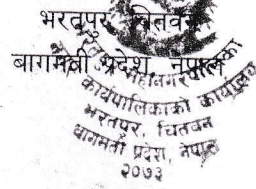 भरतपुर, चितवन
बागमती प्रदेश, नेपाल
महानगरपालिका
कार्यपालिकाको कार्यालय
भरतपुर, चितवन
बागमती प्रदेश, नेपाल
२०७३